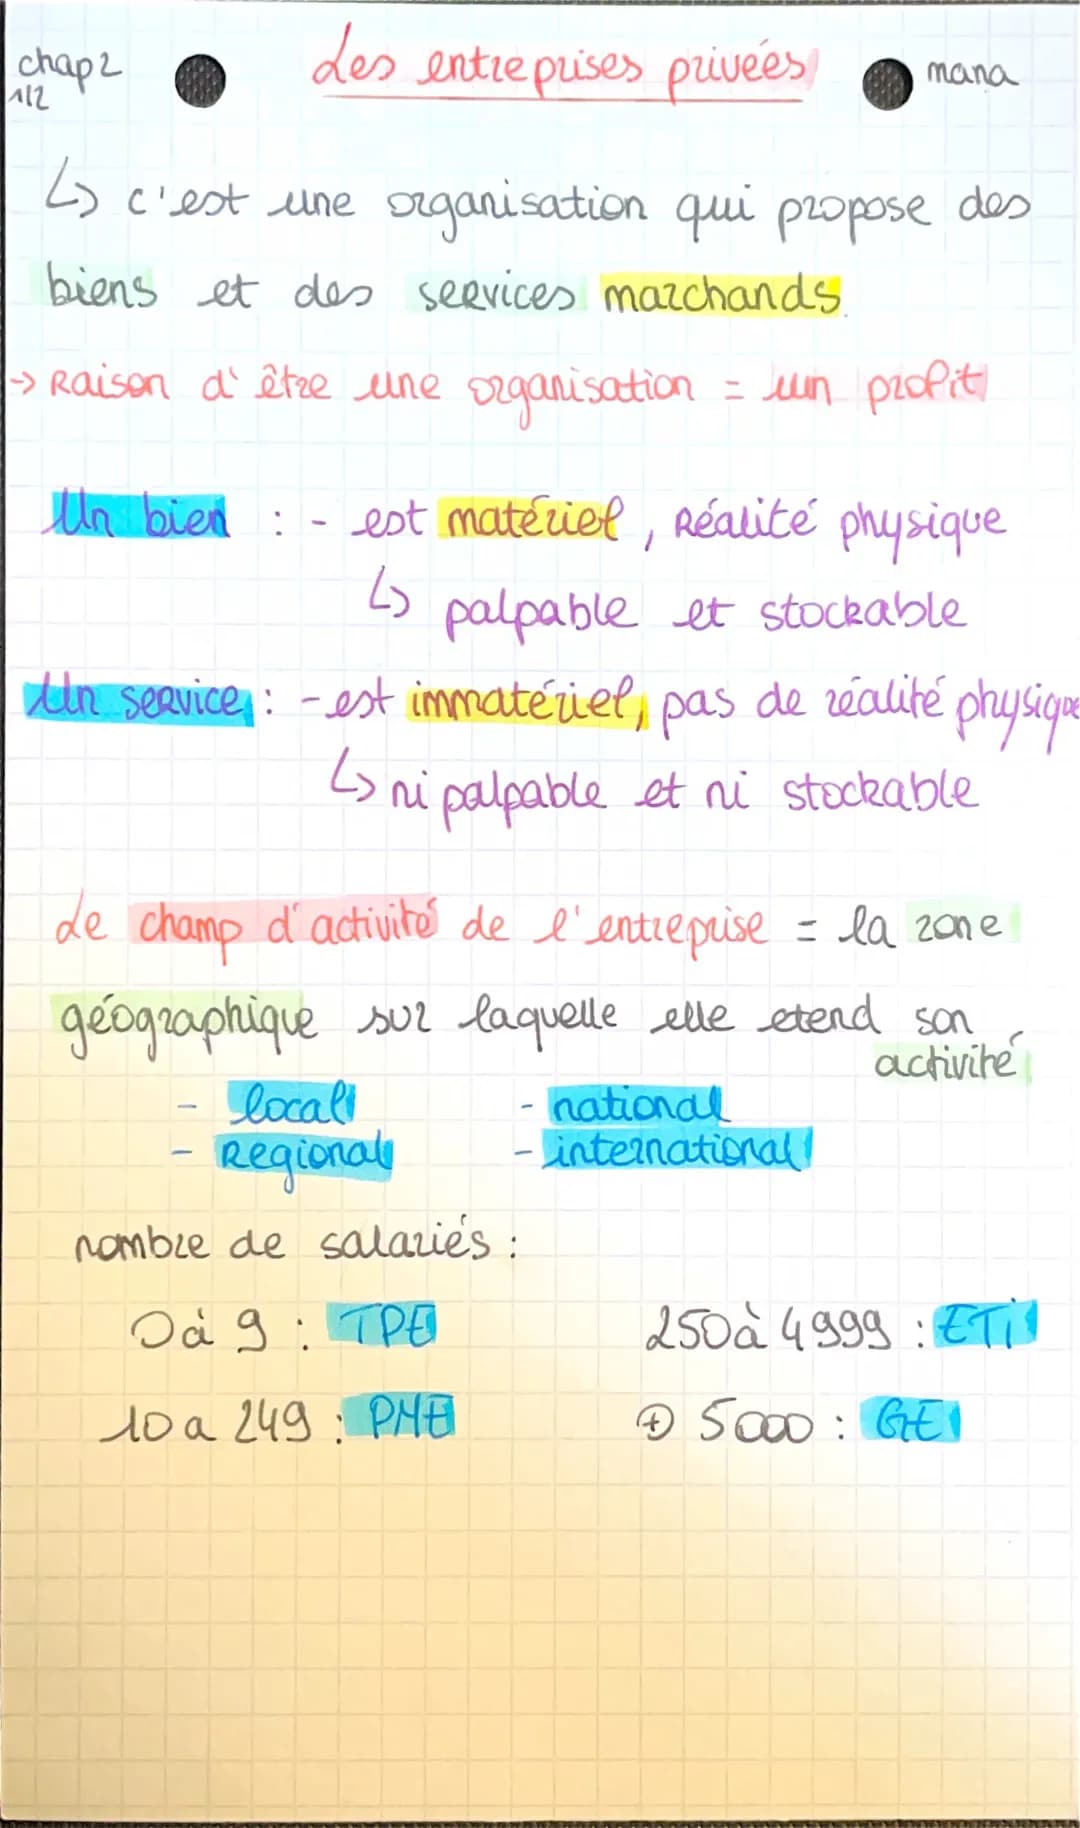 chap 2
1/2
Les entreprises privées
mana
↳ c'est une organisation qui propose des
biens et des services marchands.
→ Raison d'être une organisation = un profit
Un bien : - est matériel, Réalité physique
↳ palpable et stockable
Un service : - est immatériel, pas de réalité physique
↳ ni palpable et ni stockable
Le champ d'activité de l'entreprise = la zone
géographique sur laquelle elle etend son
activité
- local
- national
- Regional
- international
nombre de salariés :
0 à 9 : TPE
250 à 4999 : ETI
10 a 249 : PME
⊕ 5000 : GE